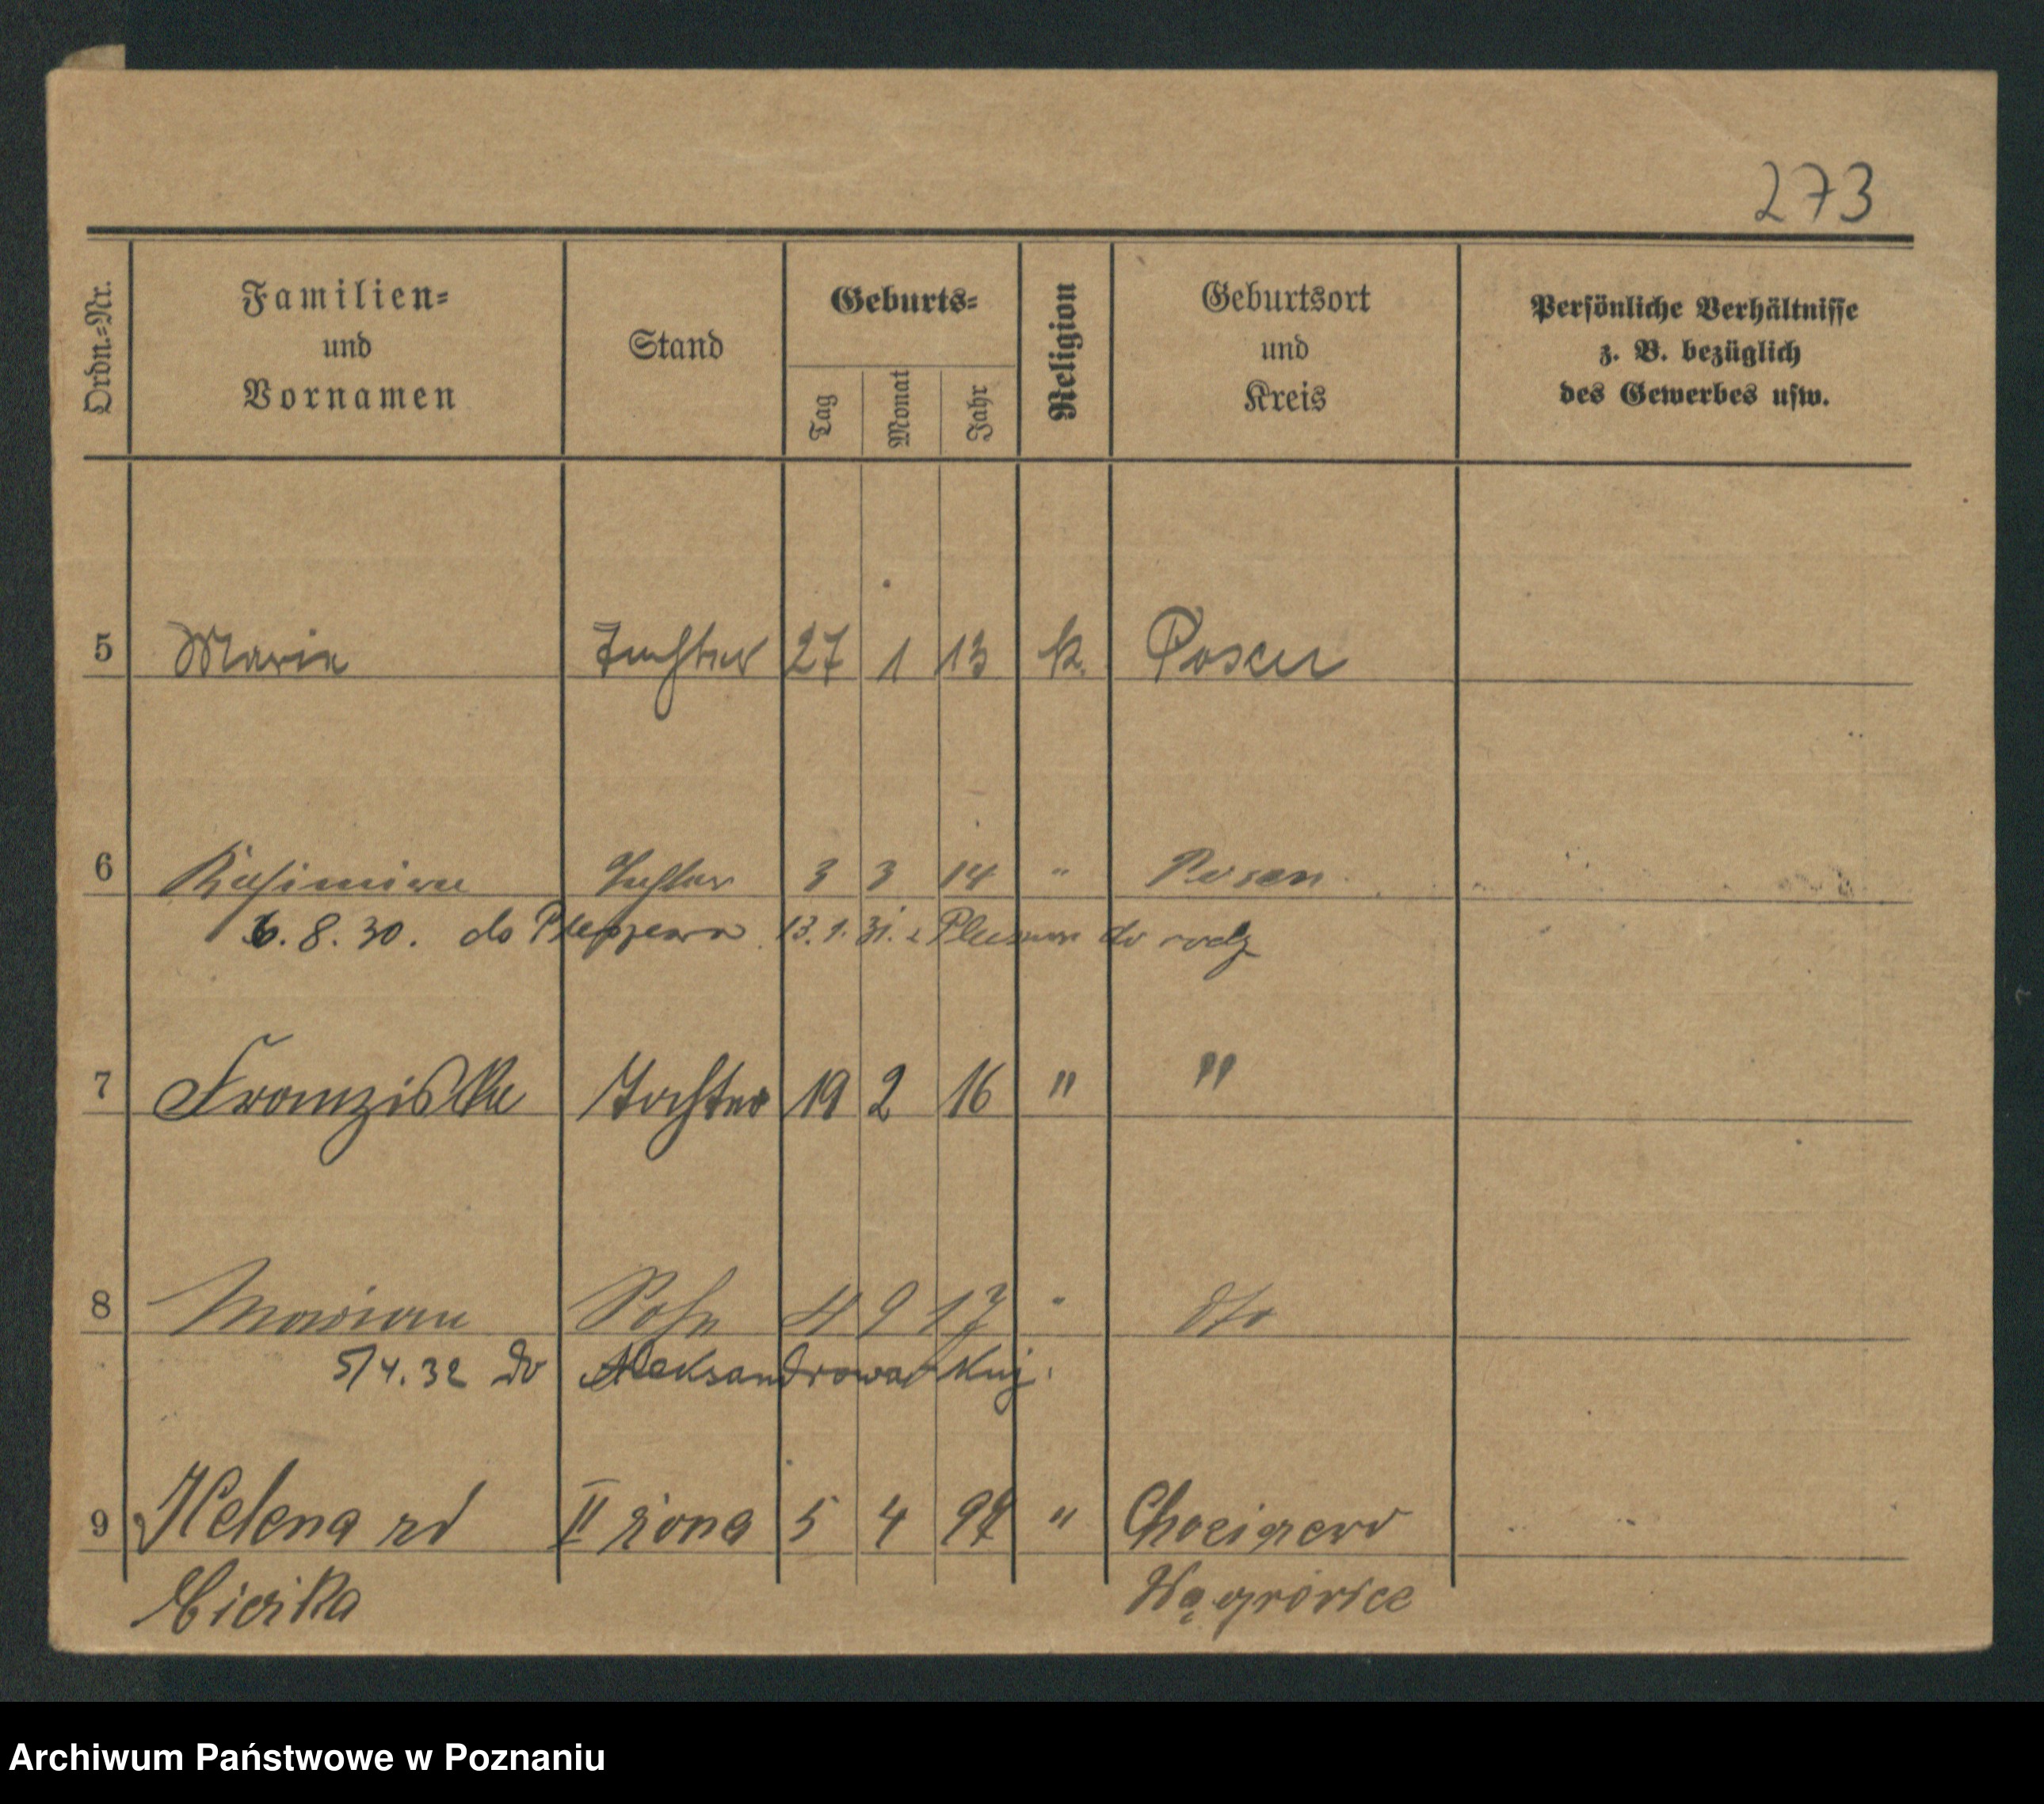 273
Ordn.=Nr.
Familien=
und
Vornamen
Stand
Geburts=
Tag
Monat
Jahr
Religion
Geburtsort
und
Kreis
Persönliche Verhältnisse
z. B. bezüglich
des Gewerbes usw.
5 Maria Tochter 27 1 13 k. Posen
6 Kasimira Tochter 3 3 14 " Posen
6.8.30. do Pleszewa 13.1.31. z Pleszewa do rodz
7 Franziska Tochter 19 2 16 " "
8 Marian Sohn 4 9 17 " dto
5/4.32 do Aleksandrowa Kuj.
9 Helena rd II żona 5 4 "
Wągrówiec
Archiwum Państwowe w Poznaniu